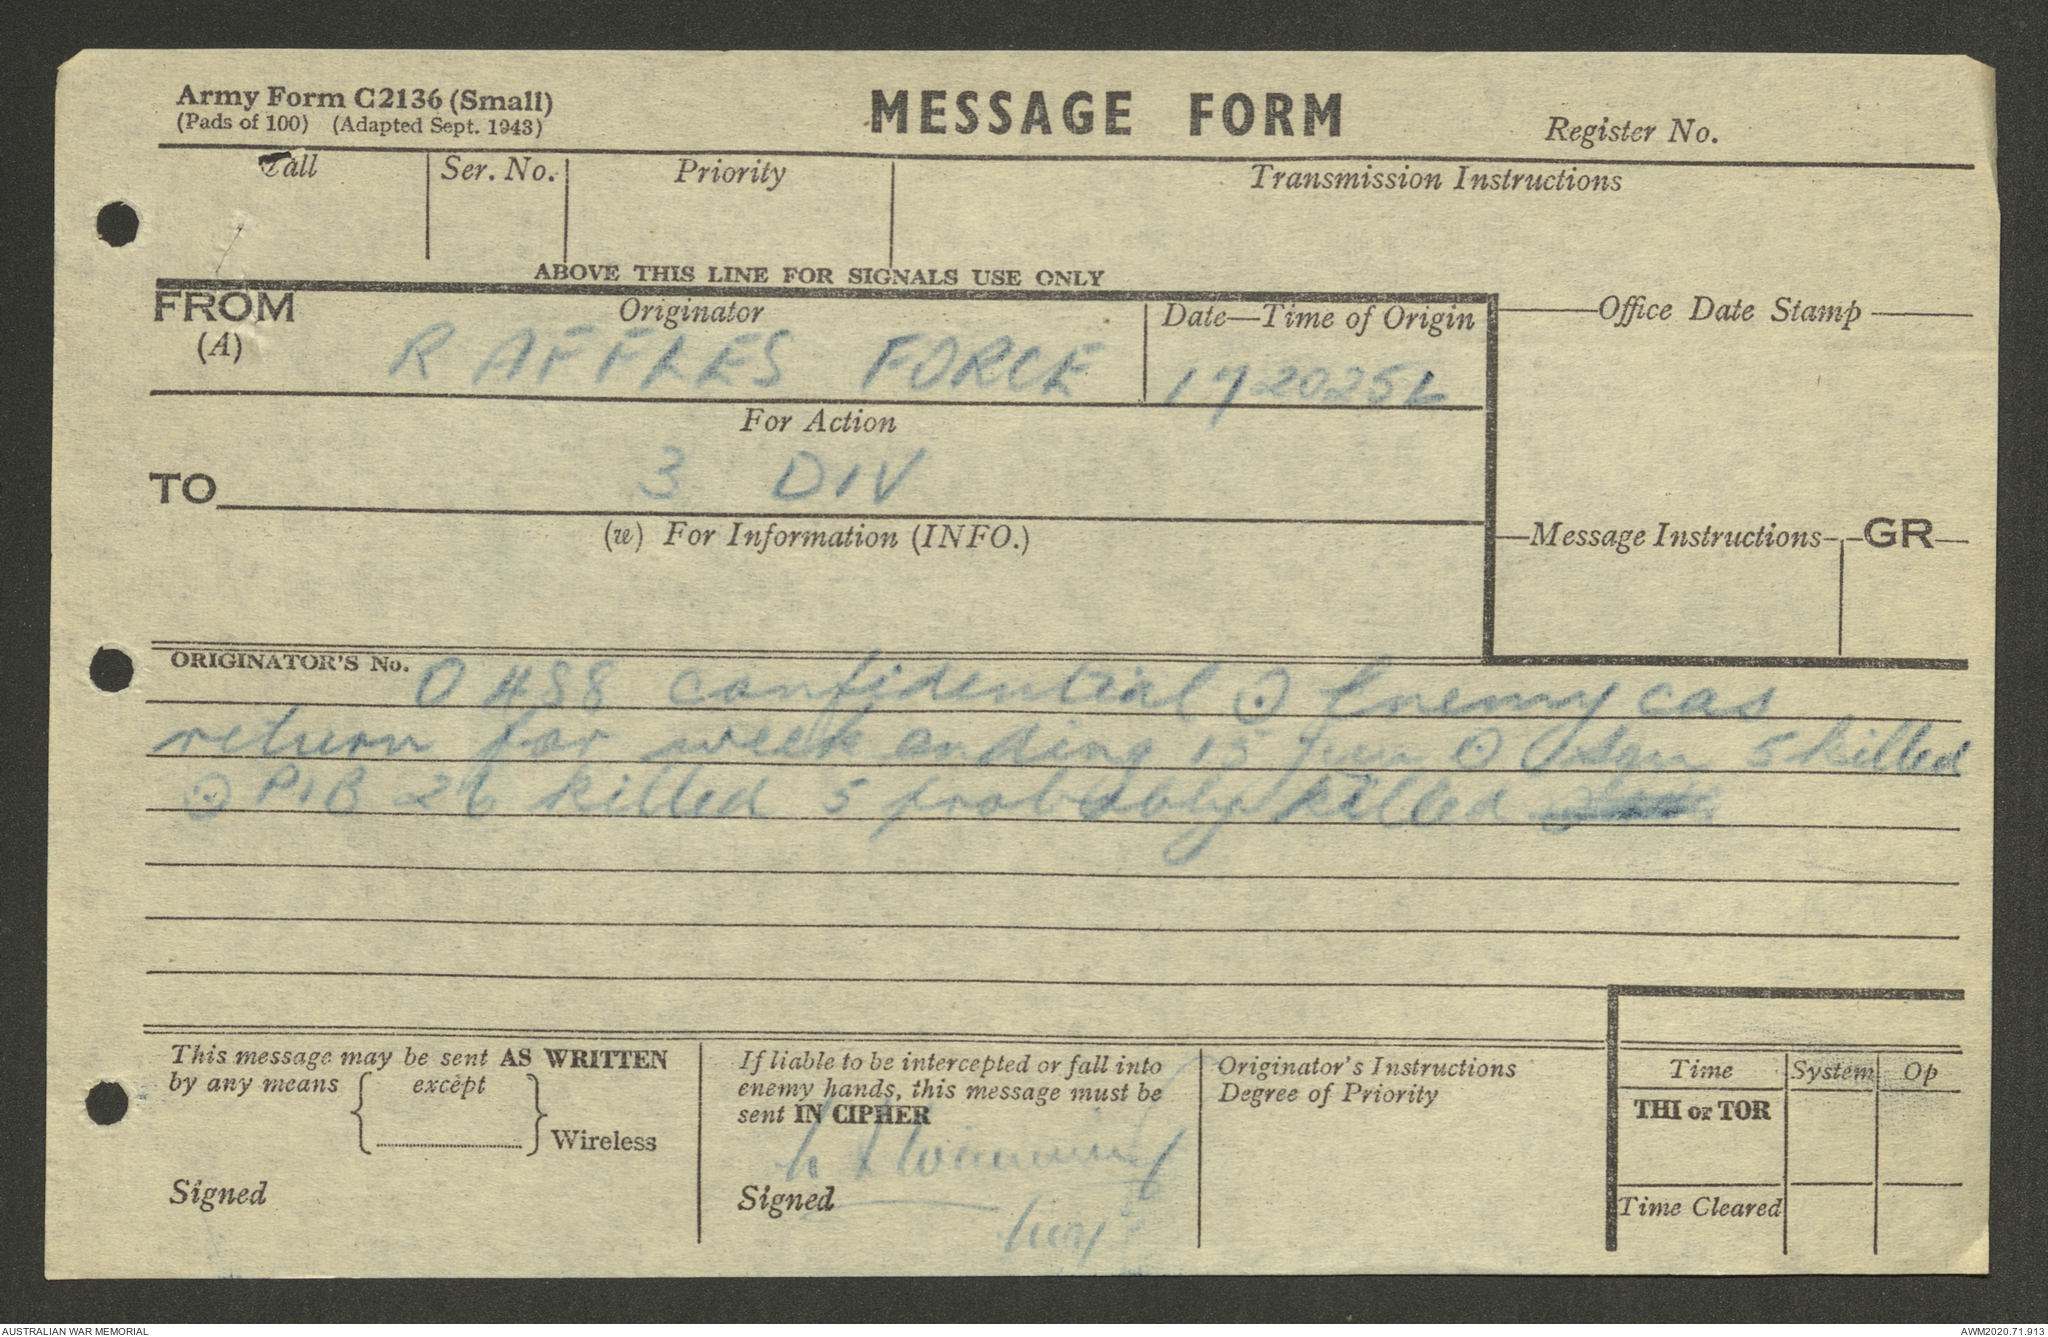 Army Form C2136 (Small)
(Pads of 100) (Adapted Sept. 1943)
MESSAGE FORM
Register No.
Call
Ser. No.
Priority
Transmission Instructions
ABOVE THIS LINE FOR SIGNALS USE ONLY
FROM
(A)
Originator
RAFFLES FORCE
Date—Time of Origin
172025L
Office Date Stamp
For Action
TO
3 DIV
(w) For Information (INFO.)
Message Instructions
GR
ORIGINATOR'S No.
O488 confidential ⊙ Enemy cas
return for week ending 15 Jun ⊙ Sqn 5 killed
⊙ PIB 26 killed 5 probably killed
This message may be sent AS WRITTEN
by any means { except }
Wireless
Signed
If liable to be intercepted or fall into
enemy hands, this message must be
sent IN CIPHER
Signed
Originator's Instructions
Degree of Priority
Time
System
Op
THI or TOR
Time Cleared
AUSTRALIAN WAR MEMORIAL
AWM2020.71.913